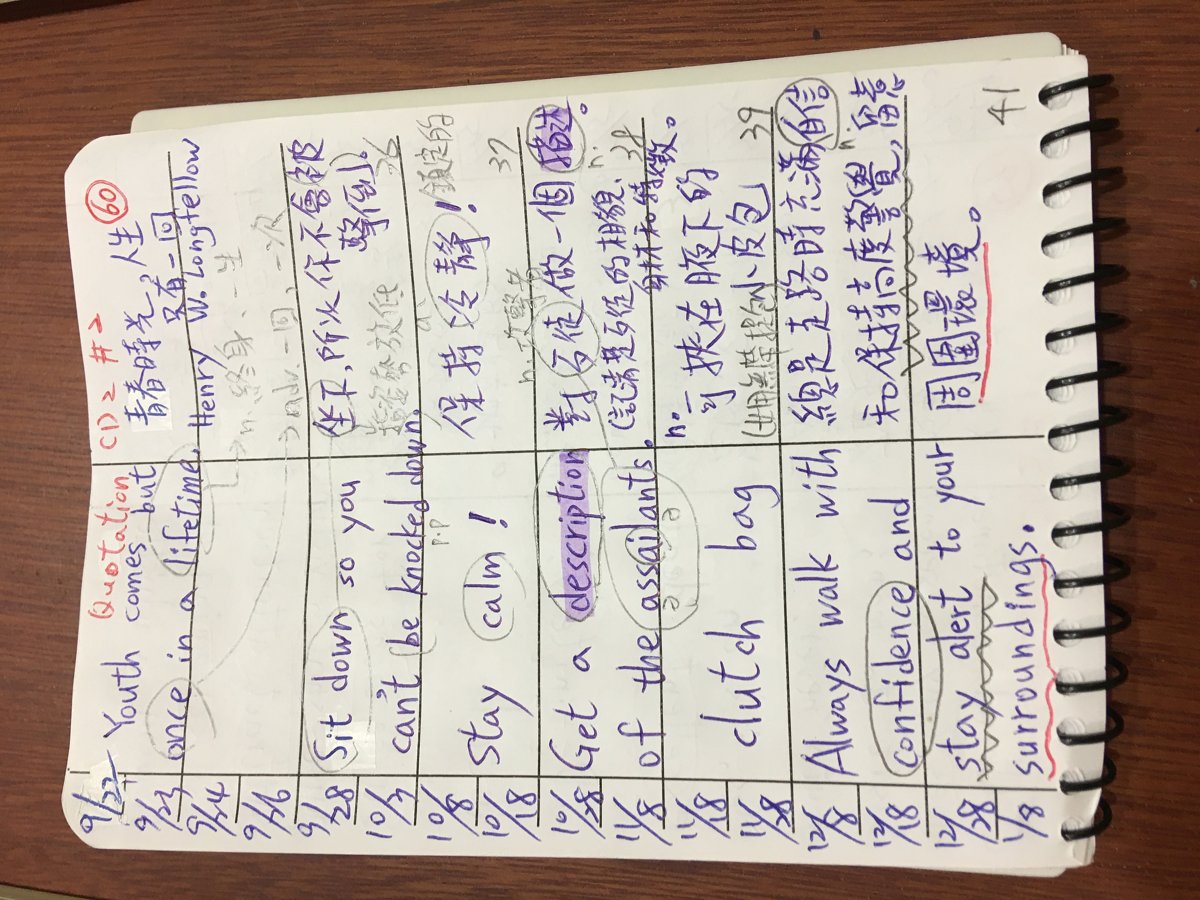 Quotation CD2 #2 60
9/22 Youth comes but 青春時光,人生
9/23 once in a lifetime. 只有一回
Henry W. Longfellow
9/24 n.終身、一生
9/26 adv. 一回、一次
9/28 Sit down so you 坐下,所以你不會被
10/3 can't be knocked down. 擊倒。
p.p 36
10/8 Stay calm! 保持冷靜! 鎮定的
10/18 a 37
10/28 Get a description 對歹徒做一個描述。
11/8 of the assailants. (記清楚歹徒的相貌、
身材和特徵。
n. 38
11/18 clutch bag n. 可挾在腋下的
11/28 小皮包 39
12/8 Always walk with 總是走路時充滿自信
12/18 confidence and 和保持高度警覺,留意
n.
12/28 stay alert to your 周圍環境。
1/8 surroundings.
41